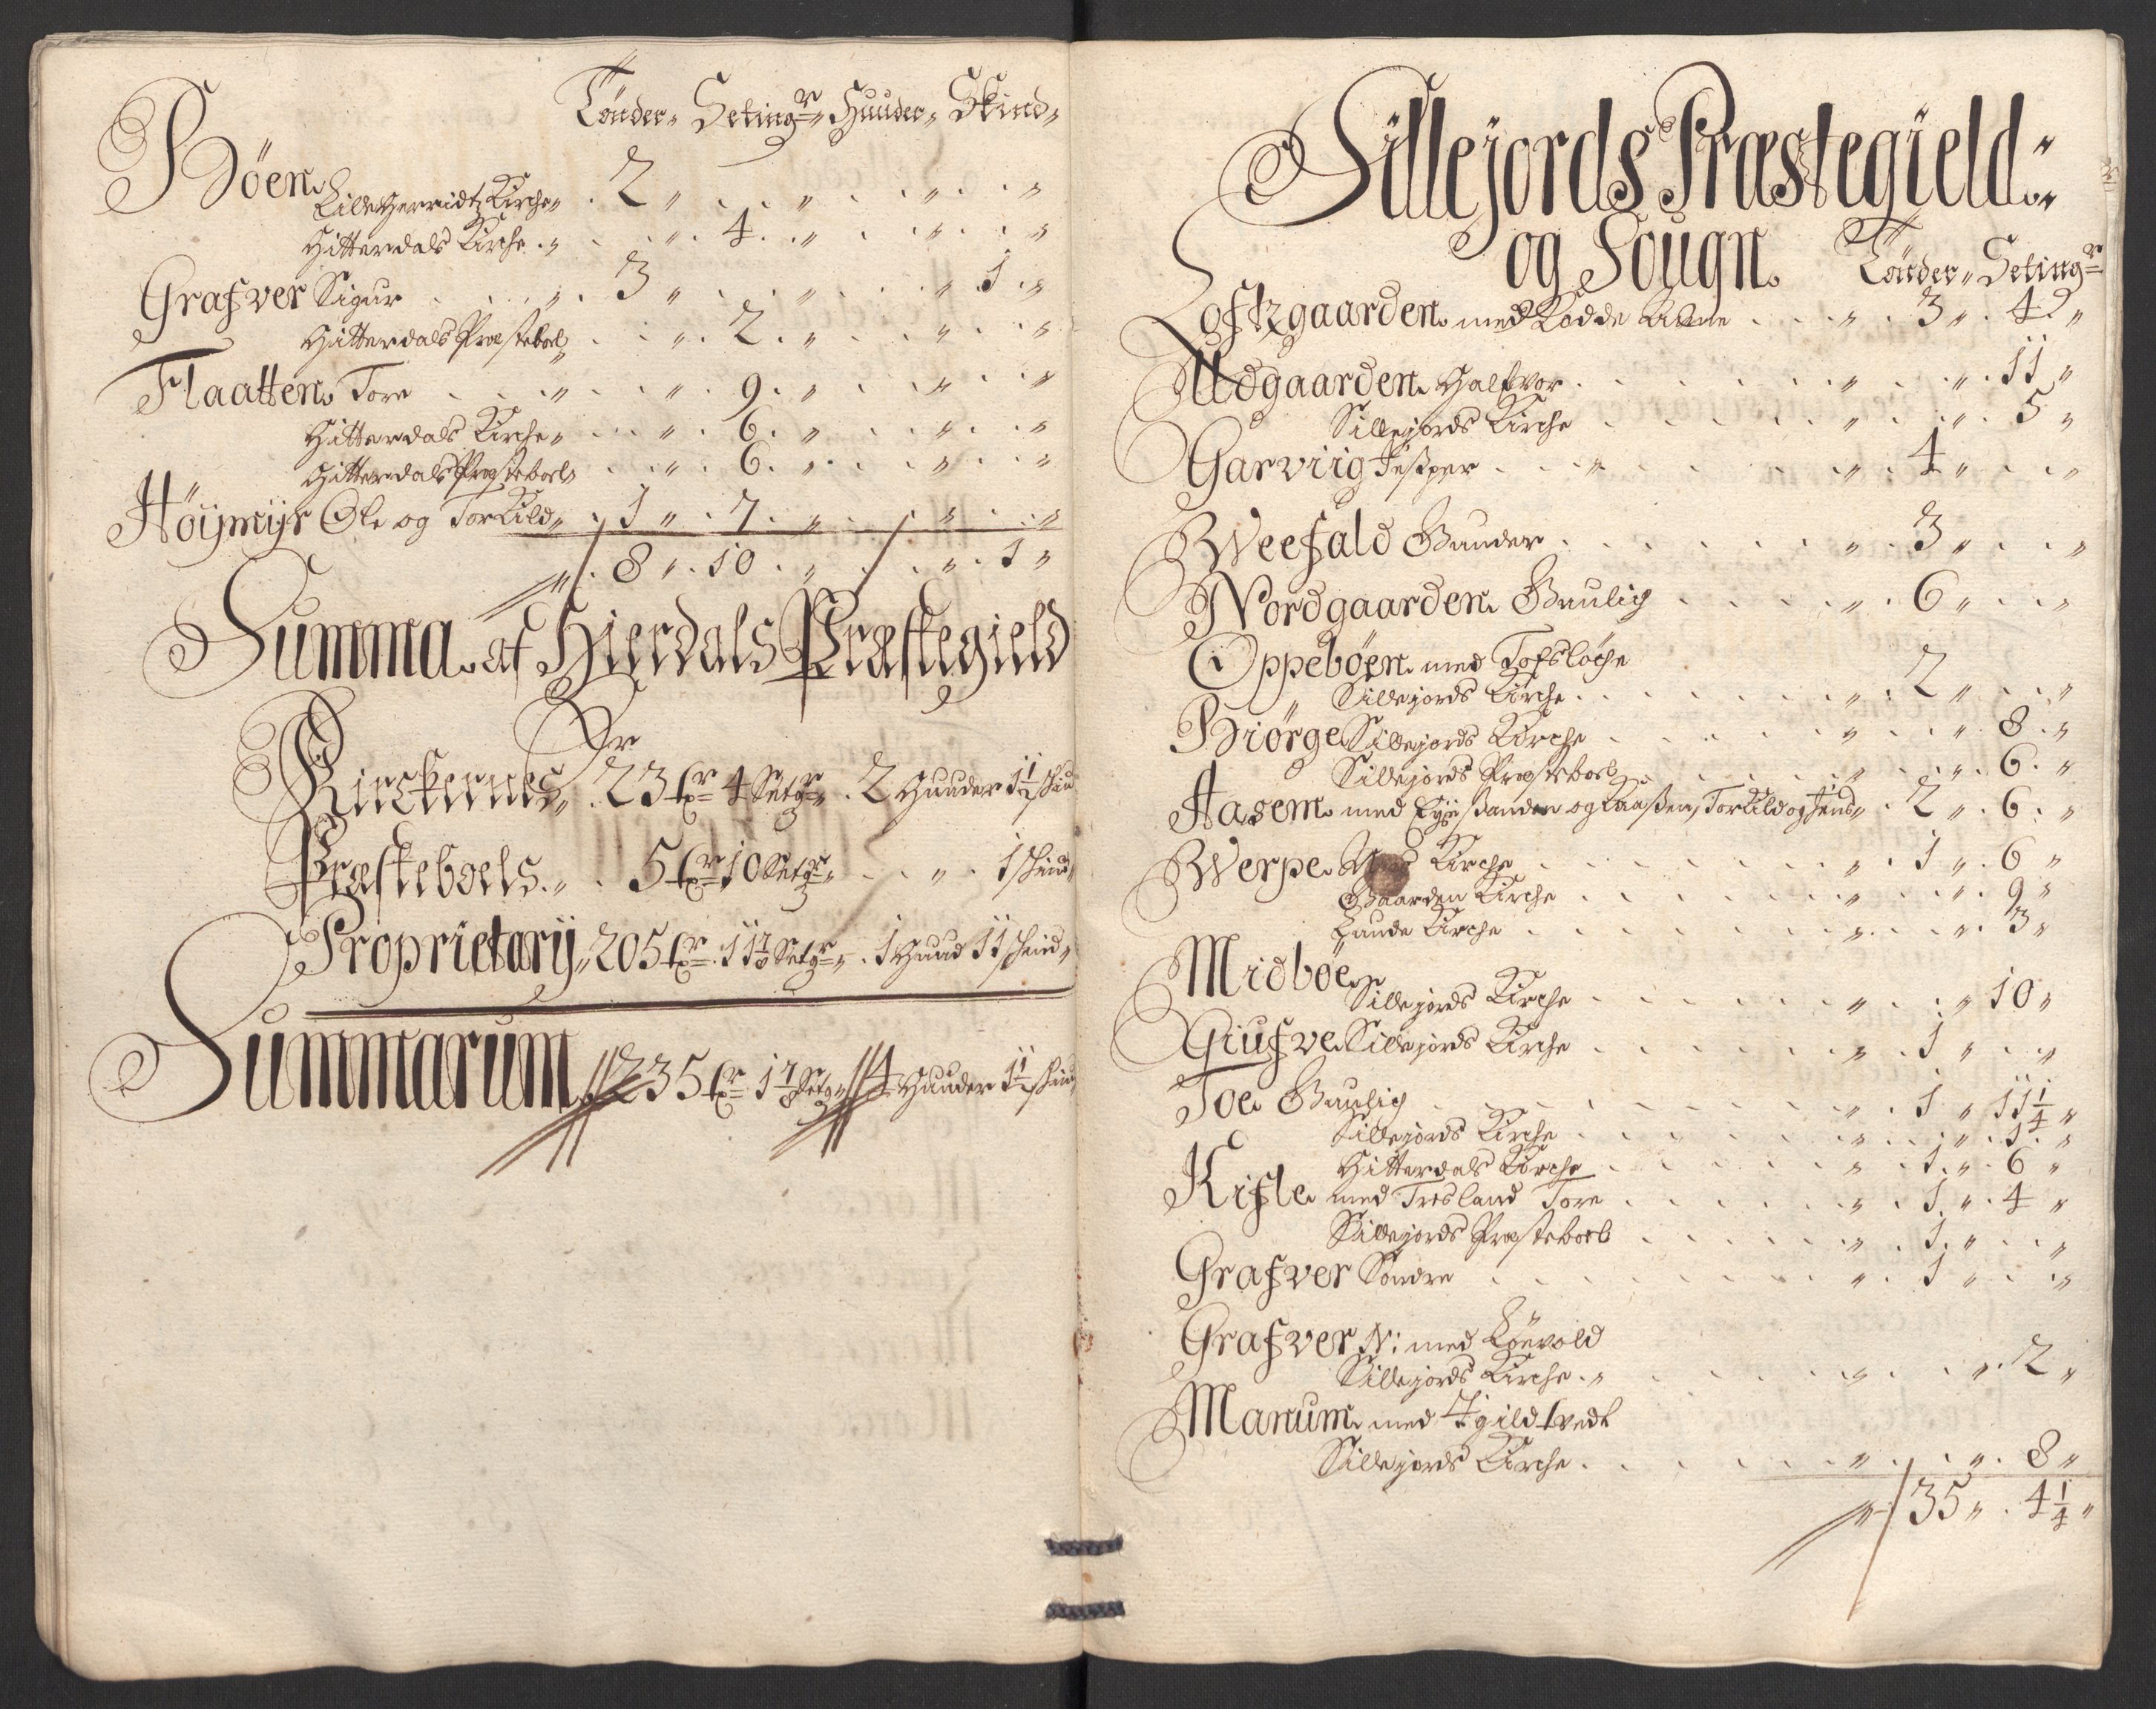 Tønder„ Seting^r„ Huuder„ Skind„
Bøen
Lilleherridtz Kirche„ . 2 „ . . „ . . „ . . „
Hitterdals Kirche . „ . . „ . 4 . „ . . „ . . „
Grafver Sigur . . . „ . 3 „ . . „ . . „ 1 . „
Hitterdals Præstebol„ . . „ . 2 . „ . . „ . . „
Flaatten Tore . . . „ . . „ . 9 . „ . . „ . . „
Hitterdals Kirche„ . . „ . 6 . „ . . „ . . „
Hitterdals Præsteboel„ . . „ . 6 . „ . . „ . . „
Høijmijr Ole og Torkild„ . 1 „ . 7 . „ . . „ . . „
„ . 8 „ . 10 . „ . . „ . 1 „
Summa af Hierdals Præstegield
Er
Kirckernes„ . 23 tr 4 Setgr„ . 2 Huuder 1 1/2 skind
Præsteboels„ . 5 tr 10 Setgr„ . . „ . 1 skind„
Proprietarij„ 205 tr . 11 7/8 Setgr„ . 1 Huud 11 skind„
Summarum 235 tr 1 7/8 Setgr„ 4 Huuder 1 1/2 skind
Sillejords Præstegield„
og Sougn. Tønder„ Seting^r
Loftzgaarden med Kodde . . „ . 3 „ . 4 „
Udgaarden Halfvor . . . „ . . „ . 11 „
Sillejords Kirche . . . „ . . „ . 5 „
Garviig Jesper . . „ . . „ . 4 „ . . „
Weefald Gunder . . . „ . 3 „ . . „
Nordgaarden Gunlig . . . „ . 6 „ . . „
Oppebøen med Tofsløche
Sillejords Kirche . . . „ . 2 „ . . „
Biørge Sillejords Kirche . . . „ . . „ 8 . „
Sillejords Præsteboel . . . „ . . „ . 6 . „
Aasem med og Aassen, Torkild og Jens„ . 2 „ . 6 . „
Werpe Kirche . . . „ . 1 „ . 6 „
Gaarden Kirche . . . „ . . „ . 9 „
Laude Kirche . . . „ . . „ . 3 „
Midbøe
Sillejords Kirche . . . „ . . „ 10 „
Giufve Sillejords Kirche . . . „ . 1 „ . . „
Joe Gunlig . . . „ . 1 „ 11 1/4 „
Sillejords Kirche . . . „ . . „ . 1 . „
Hitterdals Kirche . . . „ . 1 . „ . 6 „
Kifle med Tresland Tore . . . „ . 1 . „ . 4 „
Sillejords Præsteboel . . . „ . 1 . „ . . „
Grafver Søndre . . . „ . 1 „ . . „
Grafver N: med Løevold
Sillejords Kirche . „ . . „ . . „ . 2 „
Manum med tvedt
Sillejords Kirche . . . „ . . „ . 8 „
„ 35 „ . 4 1/4 „